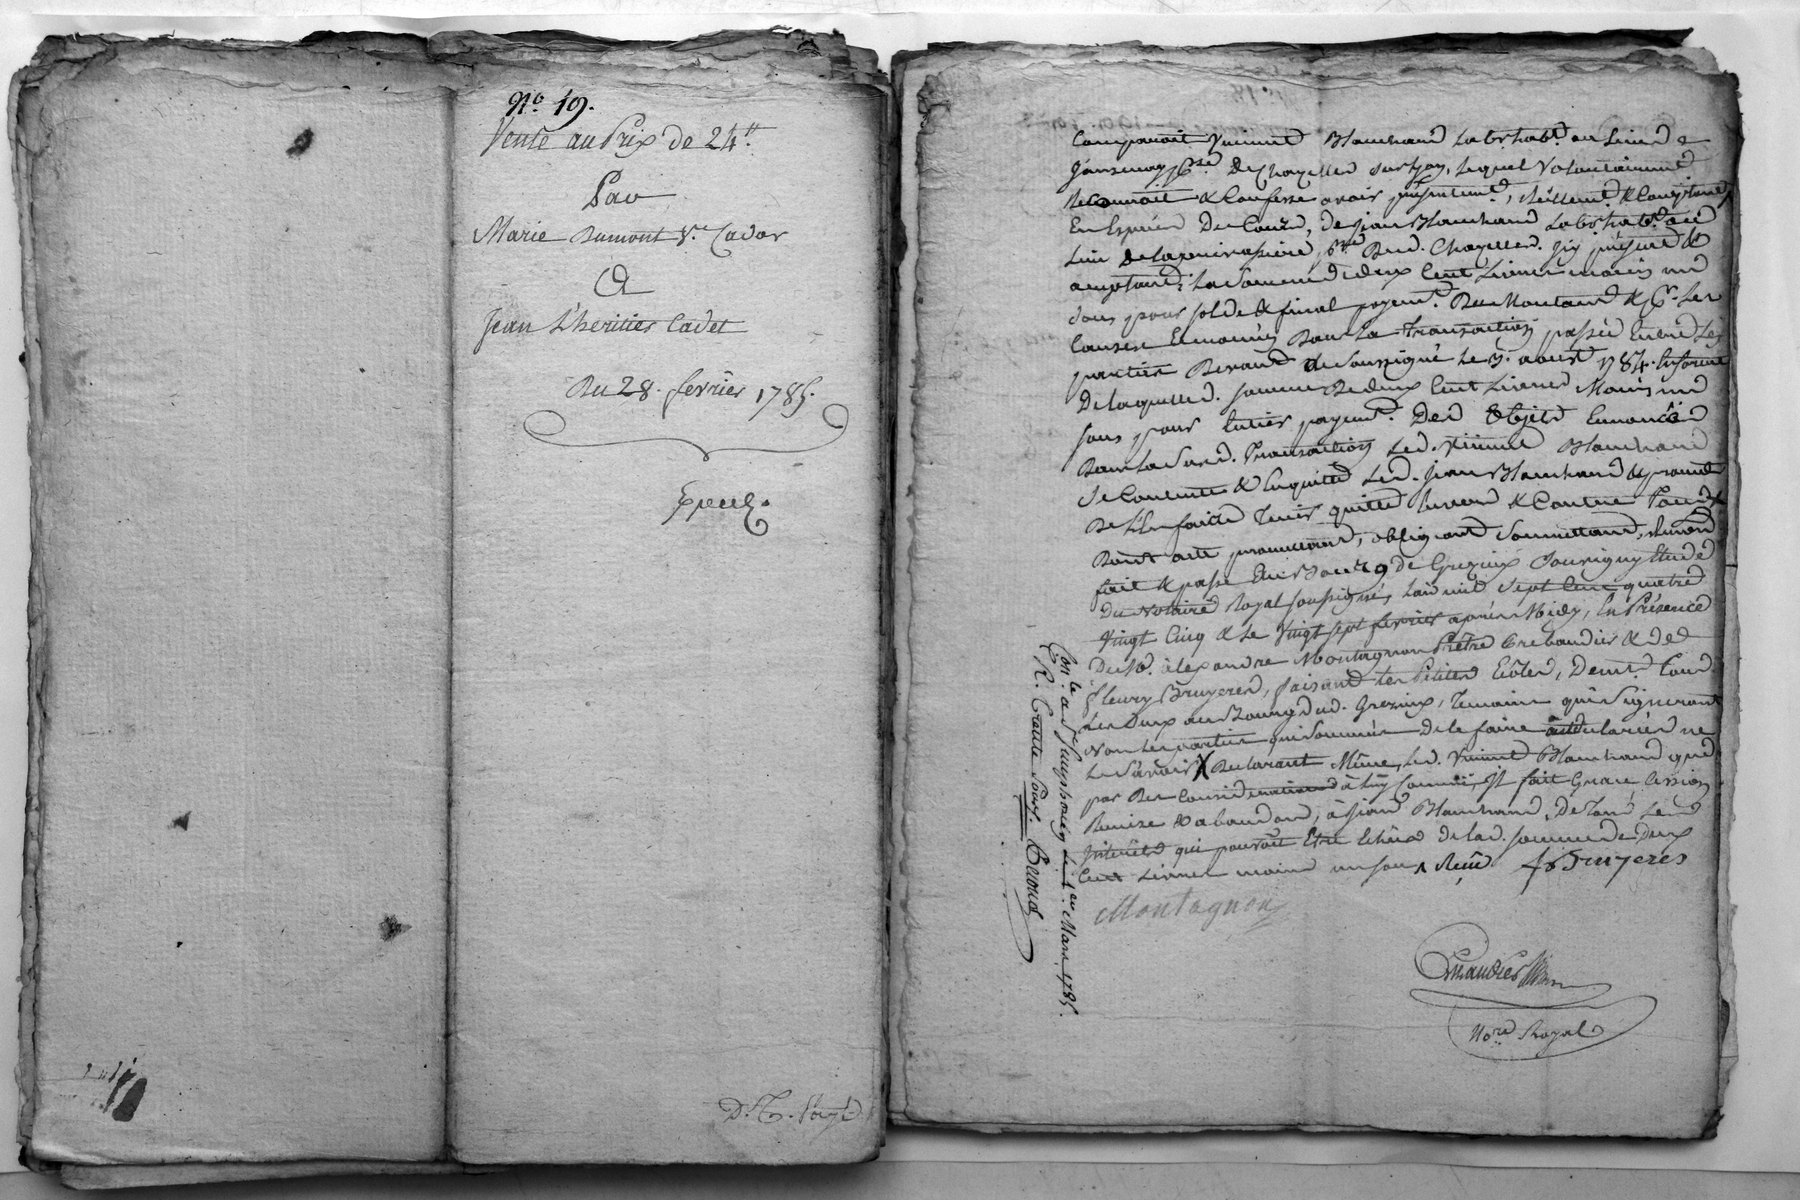 No. 19.
Vente au Prix de 24 tt
Par
Marie Dumont Ve. Cador
A
Jean L'heritier Cadet
Du 28. fevrier 1785.
Exped.
D. T. Payé
Comparoit Vincent Blanchard Labr habt. au Lieu de
psse. De Chazelles sur Lyon, Lequel Volontairement
Reconnoit & Confesse avoir présentemt., Réellemt. & Comptant
En Espéces De Cours, de Jean Blanchard Labr habt. au
Lieu de psse. Dud. Chazelles. Icy présent &
acceptant; La Somme de deux Cent Livres moins un
sous pour solde & final payemt. Du Montant & pr. Les
Causes Enoncées Dans La Transaction passée Entre Les
parties Devant Le soussigné Le 3. aoust 1784.
De laquelle d. somme De deux Cent Livres Moins un
sous pour Entier payemt. Des Objets Enoncés
Dans La Susd. Transaction Led. Vincent Blanchard
Se Contente & Enquitte Led. Jean Blanchard & promet
De L'En faire Tenir quitte Envers & Contre Tous
Dont acte promettant, obligeant Soumettant, Renonçt
fait & passé au Bourg de Grezieux Souvigny Etude
Du Notaire Royal soussigné, L'an mil Sept Cent quatre
Vingt Cinq & Le Vingt sept fevrier après Midy, En Présence
De Sr. alexandre Montagnon Prêtre Prebandier & de
fleury Bruyeres, faisant Les Petites Ecoles, Demt. Tous
Les Deux au Bourg dud. Grezieux, Temoins qui Signeront
Non Les parties qui Sommées De le faire ont declarées ne
Le Savoir X Declarant Même, Led. Vincent Blanchard que
par Des Considerations à Luy Connues, Il fait Grace Cession
Remise & abandon, à Jean Blanchard, De Tous Les
Intérêts qui pouroit Etre Echus de Lad. somme de Deux
Cent Livres moins un sou f Bruyeres
Montagnon
Nore. Royal
Con. le a St. Simphorien Le 1er. Mars 1785.
R. Traitte Sous.